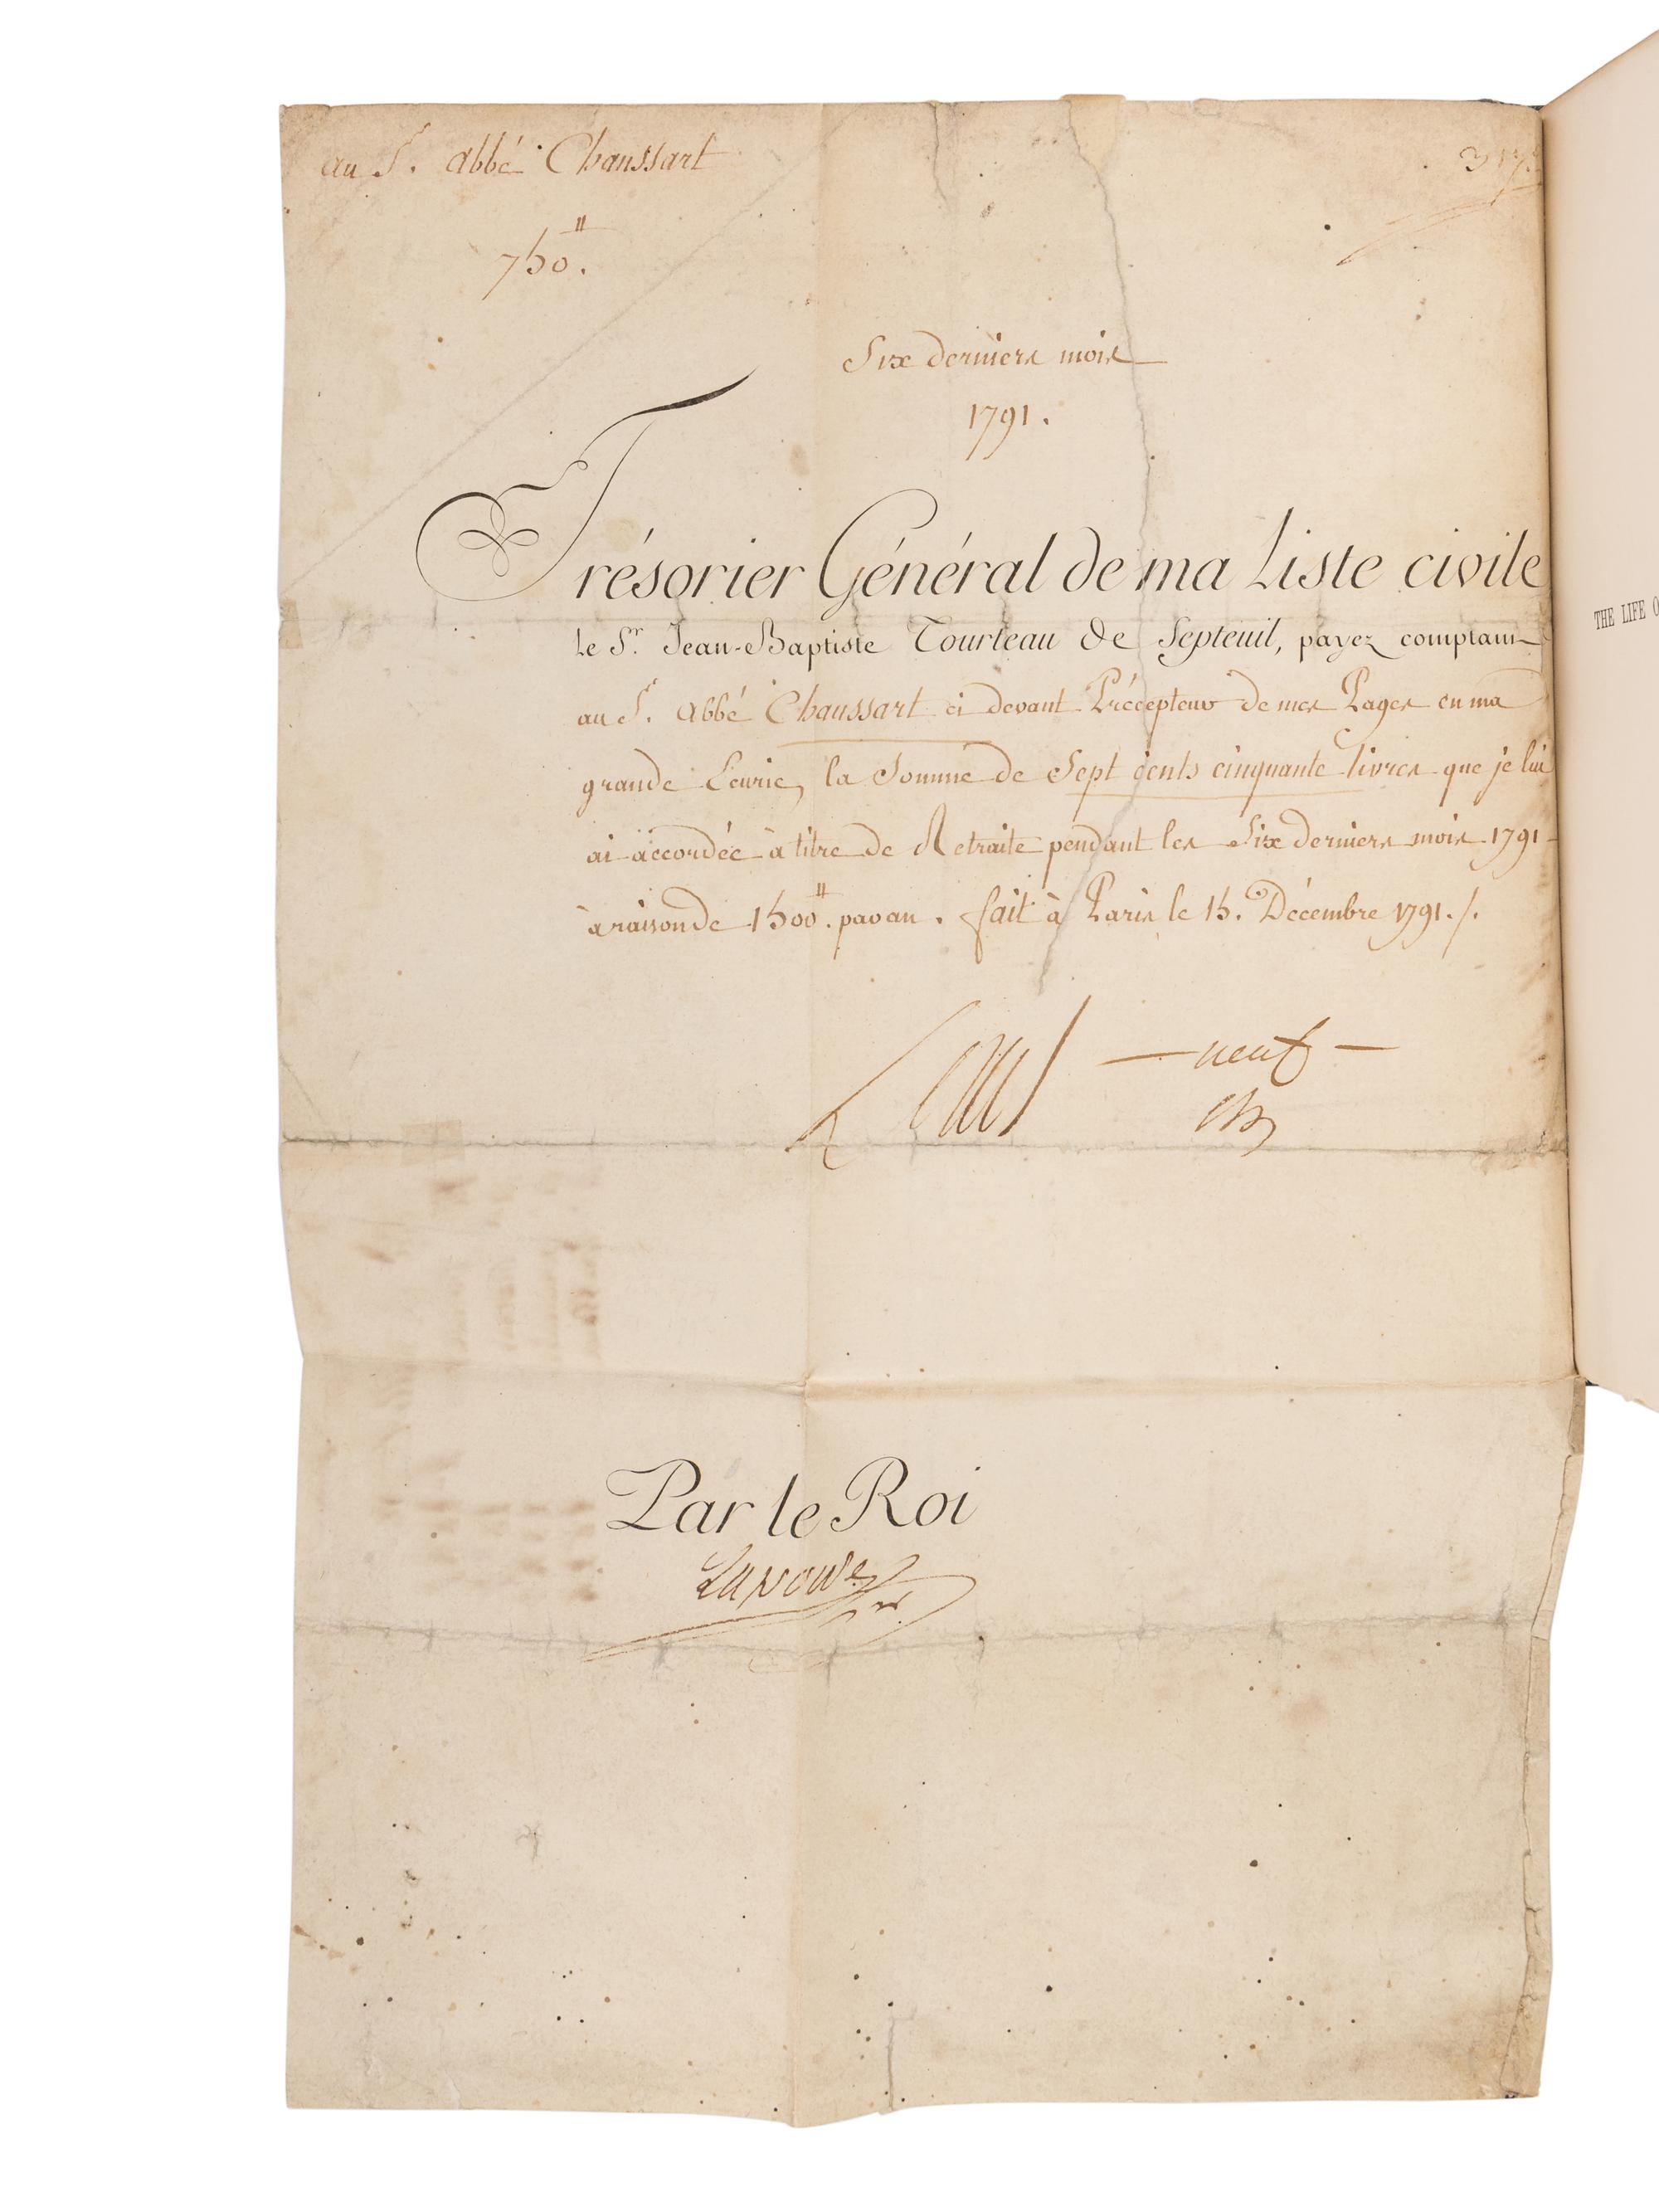 au Sr. abbé Chaussart
750.
Six derniers mois
1791.
Trésorier Général de ma Liste civile
le Sr. Jean-Baptiste Tourteau de Septeuil, payez comptant
au Sr. abbé Chaussart ci devant Précepteur de mes Pages en ma
grande Ecurie, la Somme de Sept cents cinquante livres que je lui
ai accordée à titre de Retraite pendant les Six derniers mois 1791
à raison de 1500. par an. fait à Paris le 15. Décembre 1791. /.
Louis
Par le Roi
THE LIFE O